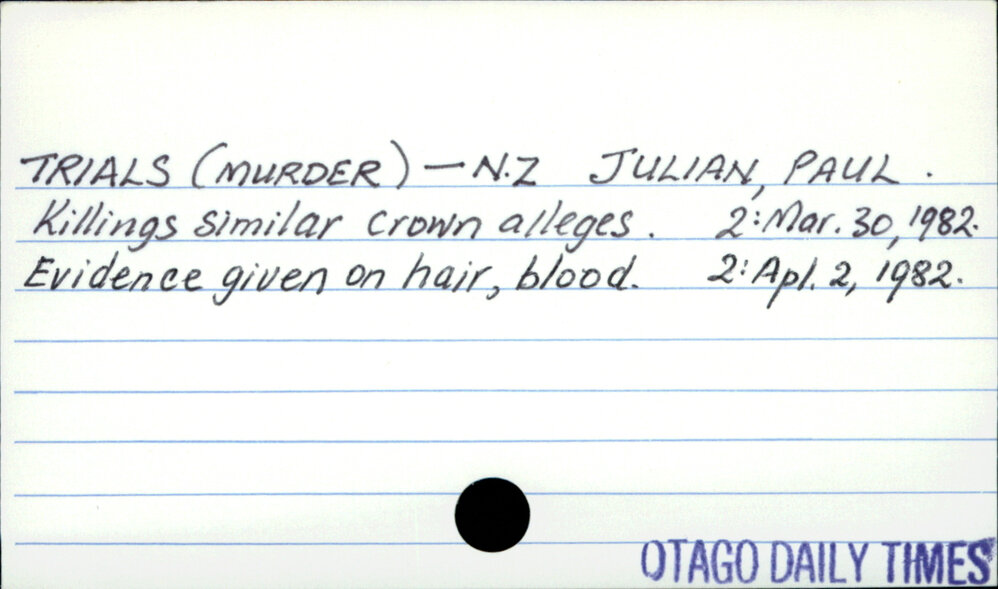 TRIALS (MURDER) — N.Z JULIAN, PAUL.
Killings similar Crown alleges. 2: Mar. 30, 1982.
Evidence given on hair, blood. 2: Apl. 2, 1982.
OTAGO DAILY TIMES